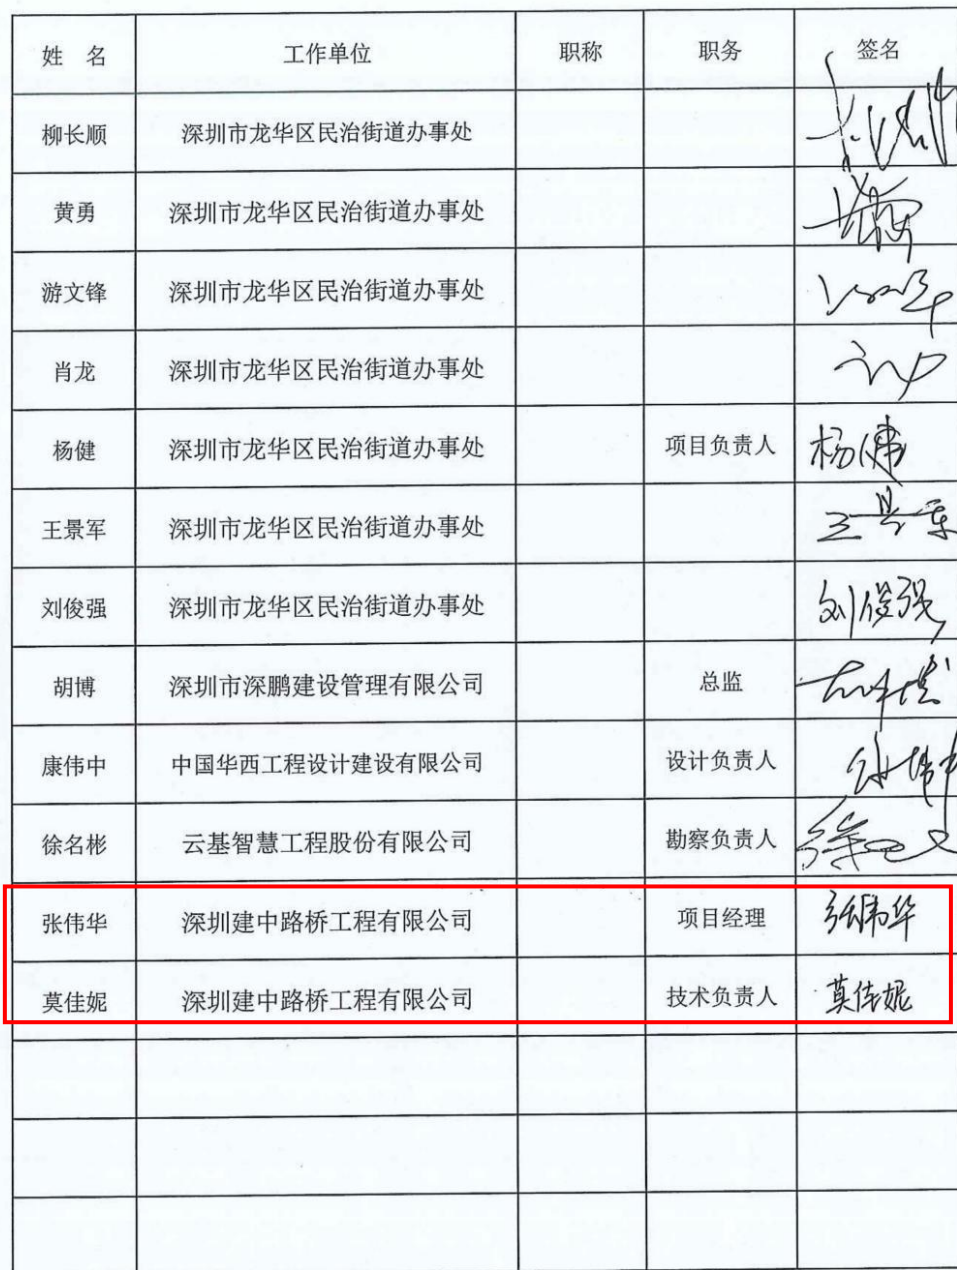 姓 名 工作单位 职称 职务 签名
柳长顺 深圳市龙华区民治街道办事处
黄勇 深圳市龙华区民治街道办事处
游文锋 深圳市龙华区民治街道办事处
肖龙 深圳市龙华区民治街道办事处
杨健 深圳市龙华区民治街道办事处 项目负责人 杨健
王景军 深圳市龙华区民治街道办事处 王景军
刘俊强 深圳市龙华区民治街道办事处 刘俊强
胡博 深圳市深鹏建设管理有限公司 总监
康伟中 中国华西工程设计建设有限公司 设计负责人
徐名彬 云基智慧工程股份有限公司 勘察负责人
张伟华 深圳建中路桥工程有限公司 项目经理 张伟华
莫佳妮 深圳建中路桥工程有限公司 技术负责人 莫佳妮